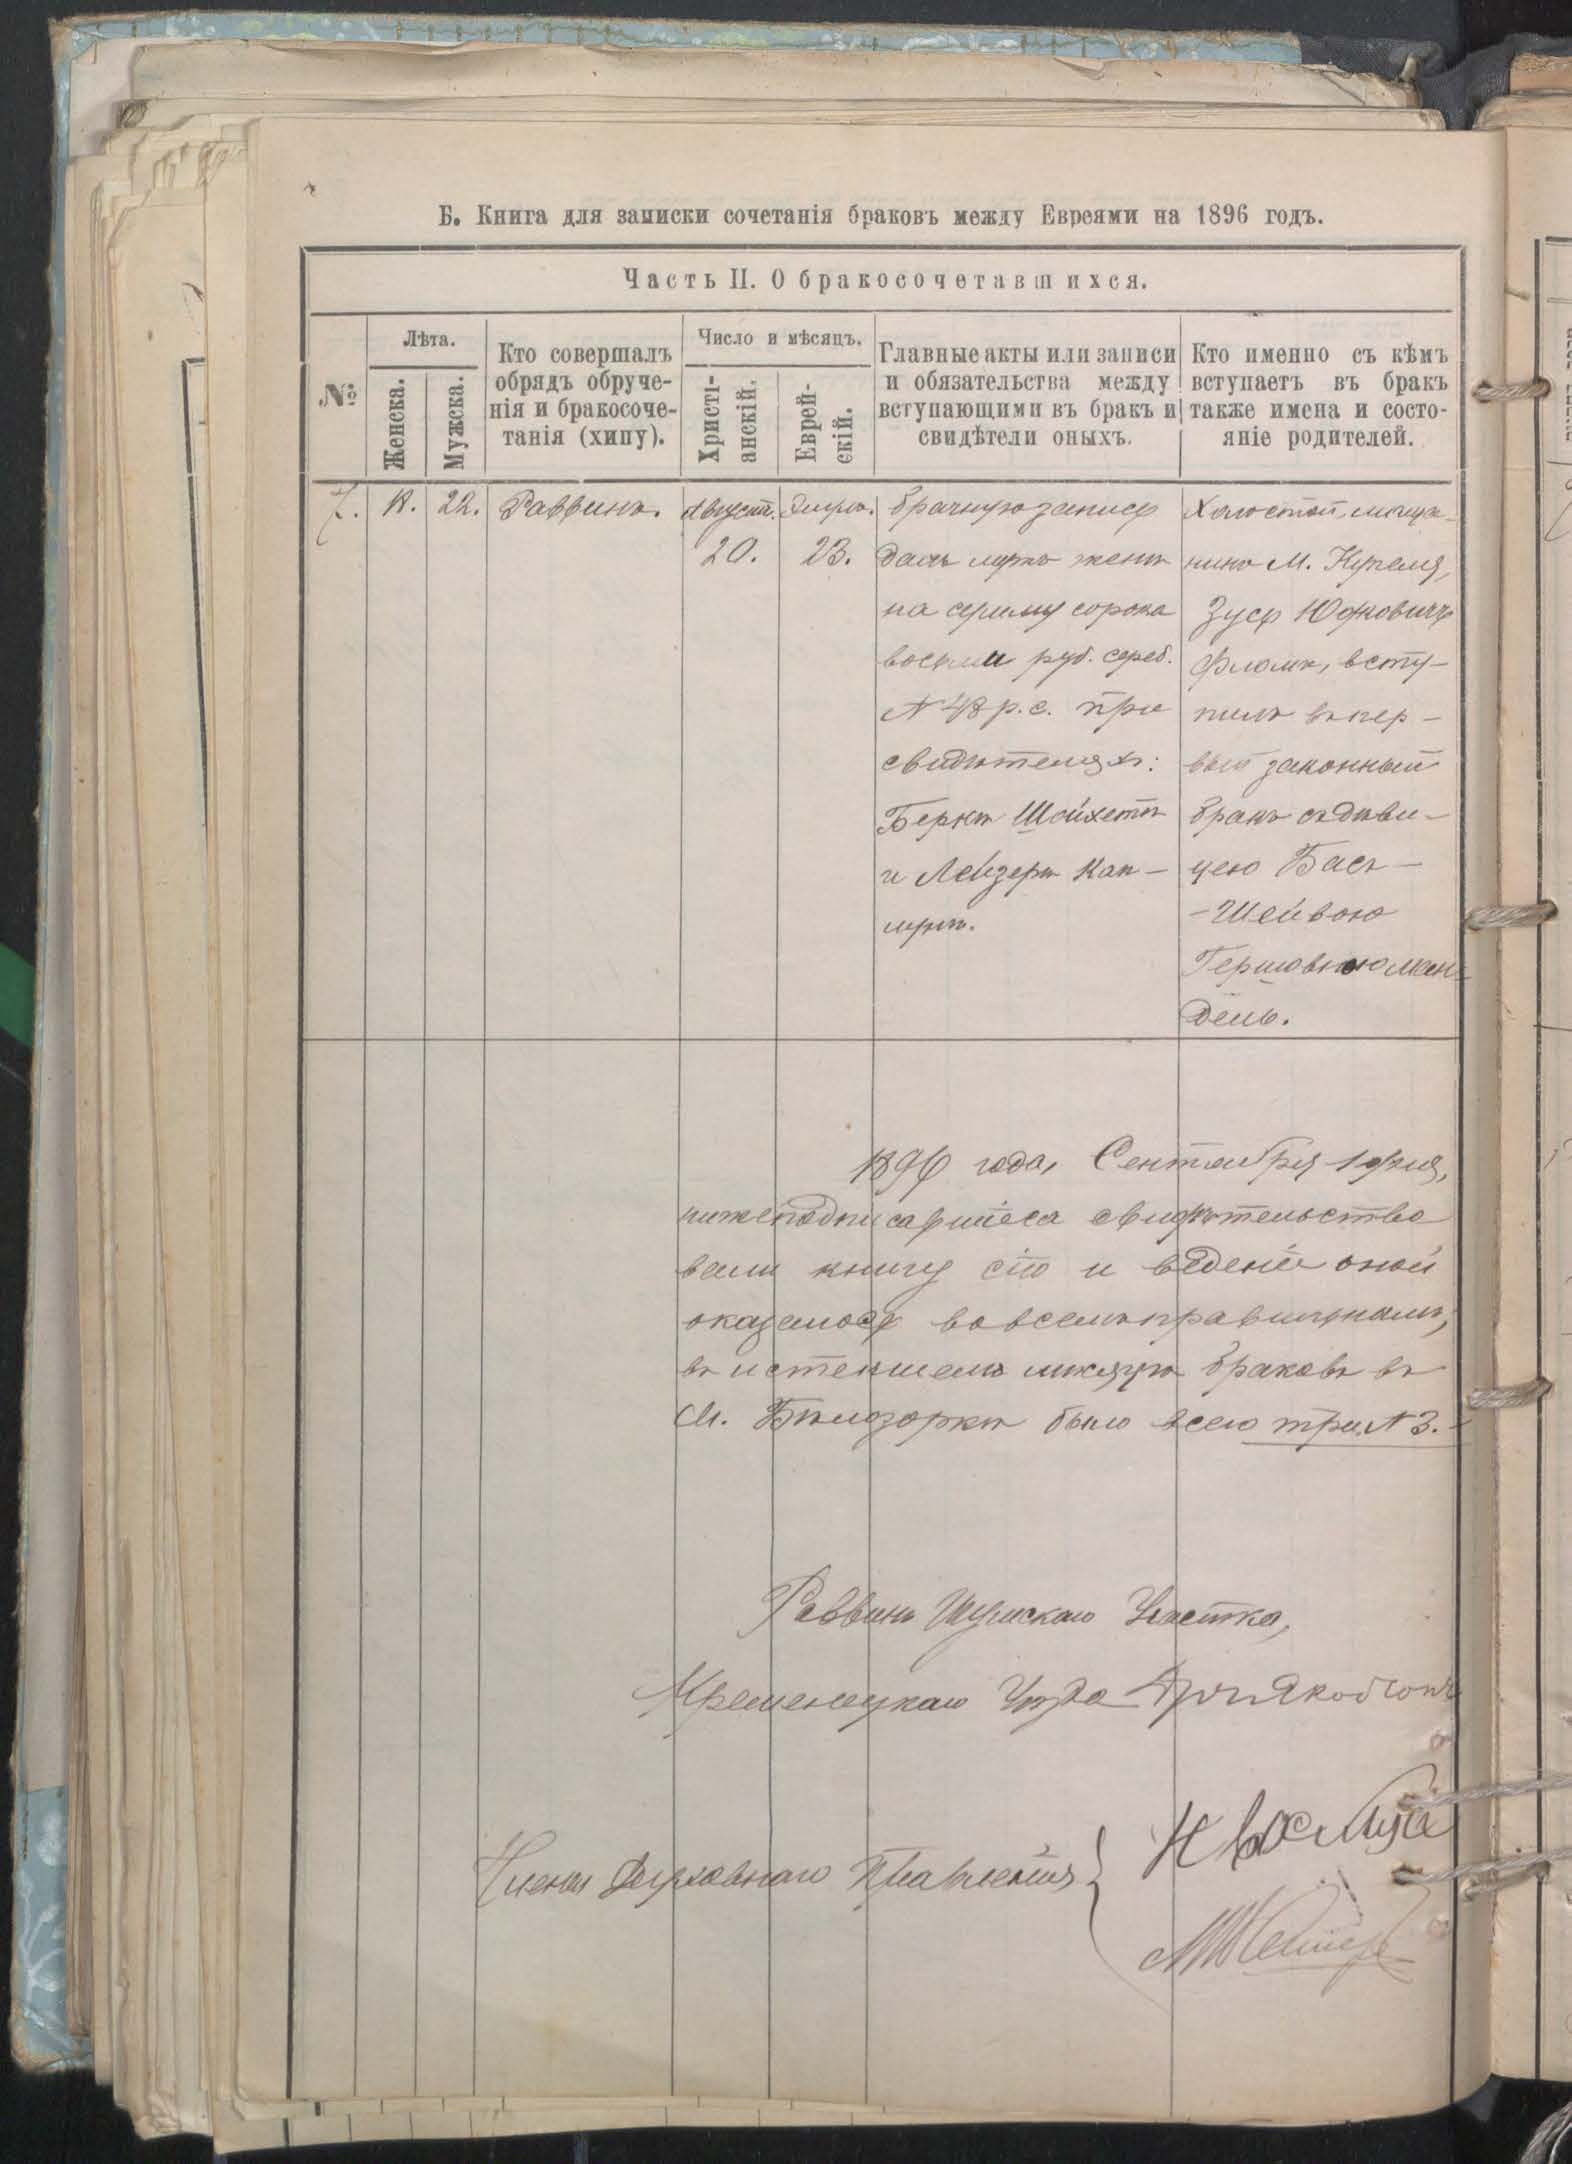 Б. Книга для записки сочетанія браковъ между Евреями на 1896 годъ.
Часть II. О бракосочетавшихся.
№
Лѣта.
Женска.
Мужска.
Кто совершалъ
обрядъ обруче-
нія и бракосоче-
танія (хипу).
Число и мѣсяцъ.
Христі-
анскій.
Еврей-
скій.
Главные акты или записи
и обязательства между
вступающими въ бракъ и
свидѣтели оныхъ.
Кто именно съ кѣмъ
вступаетъ въ бракъ
также имена и состо-
яніе родителей.
7.
18.
22.
Раввинъ.
Августа.
20.
Элулъ.
23.
Брачную запись
далъ мужъ женѣ
на сумму сорока
восьми руб. сереб.
№ 48 р. с. при
свидѣтеляхъ:
Беркѣ Шойхетѣ
и Лейзерѣ Кап-
Холостой, мѣща-
нинъ М. Купеля,
Зусь Юсковичъ
Фломъ, всту-
пилъ въ пер-
вый законный
бракъ съ дѣви-
цею Бась-
-Шейвою
Гершовною Ман-
дель.
1896 года, Сентября 1 дня,
нижеподписавшіеся свидѣтельство
вали книгу сію и веденіе оной
оказалось во всемъ правильнымъ,
въ истекшемъ мѣсяцѣ браковъ въ
М. Бѣлозоркѣ было всего три № 3.
Раввинъ Шумскаго Участка,
Кременецкаго Уѣзда Якобсонъ
Члены Духовнаго Правленія